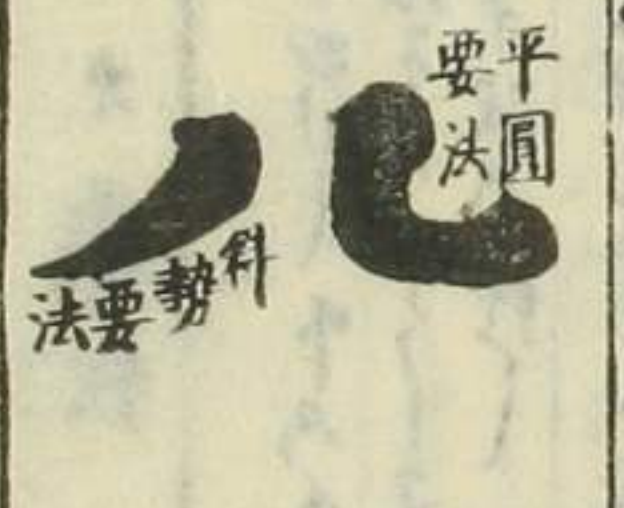 平圓
要法
斜勢要法